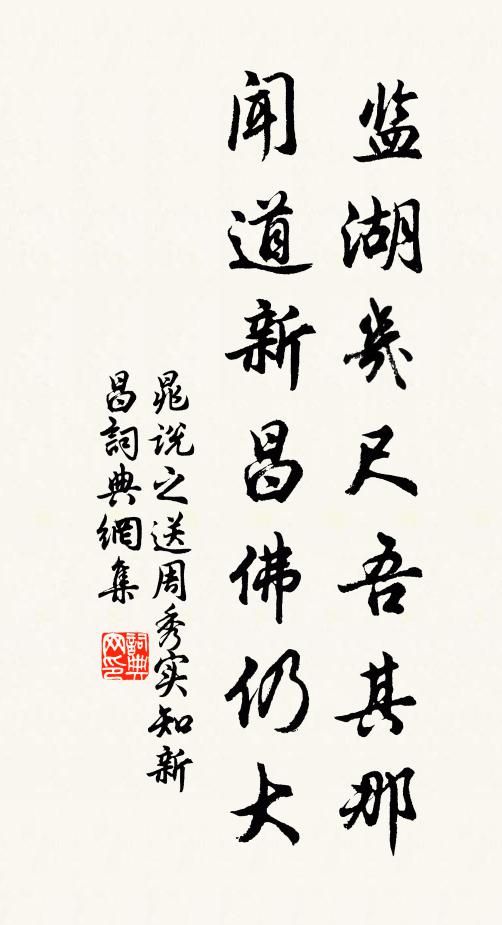 监湖幾尺吾其那
闻道新昌佛仍大
晁说之送周秀实知新
昌詞典網集
詞典网印